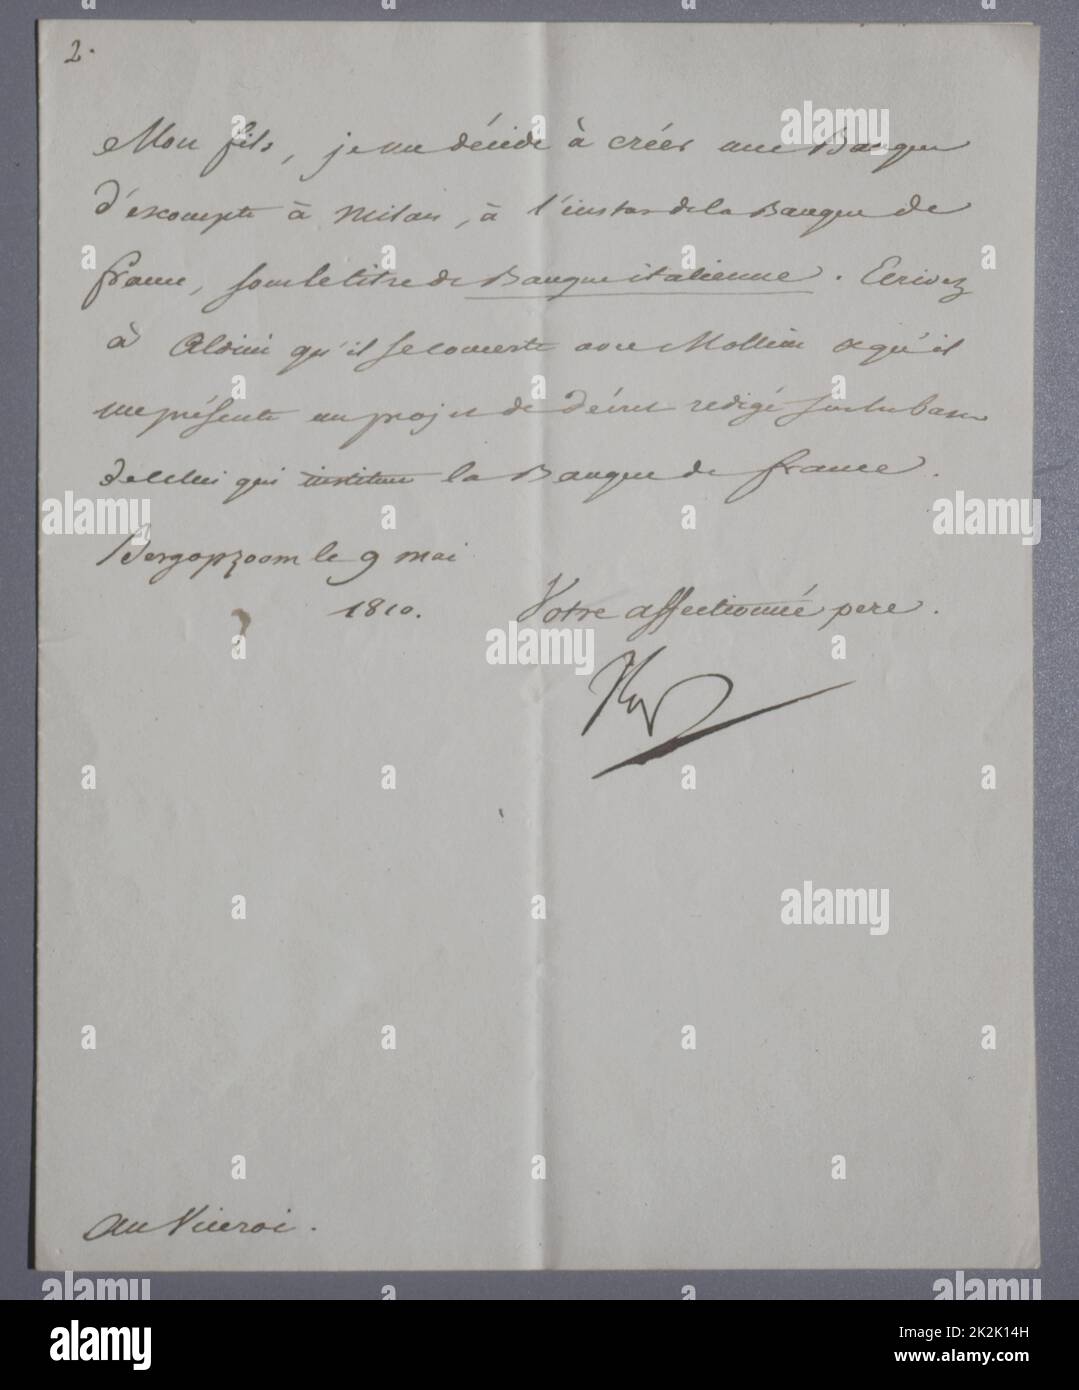 2.
Mon fils, je me décide à créer une Banque
d'escompte à Milan, à l'instar de la Banque de
france, sous le titre de Banque italienne. Ecrivez
à Aldini qu'il se concerte avec Mollien & qu'il
me présente un projet de décret redigé sur les bases
de celui qui institue la Banque de france.
Bergopzoom le 9 mai
1810.
Votre affectionné pere.
Au Viceroi.
alamy
Image ID: 2K2K14H
www.alamy.com